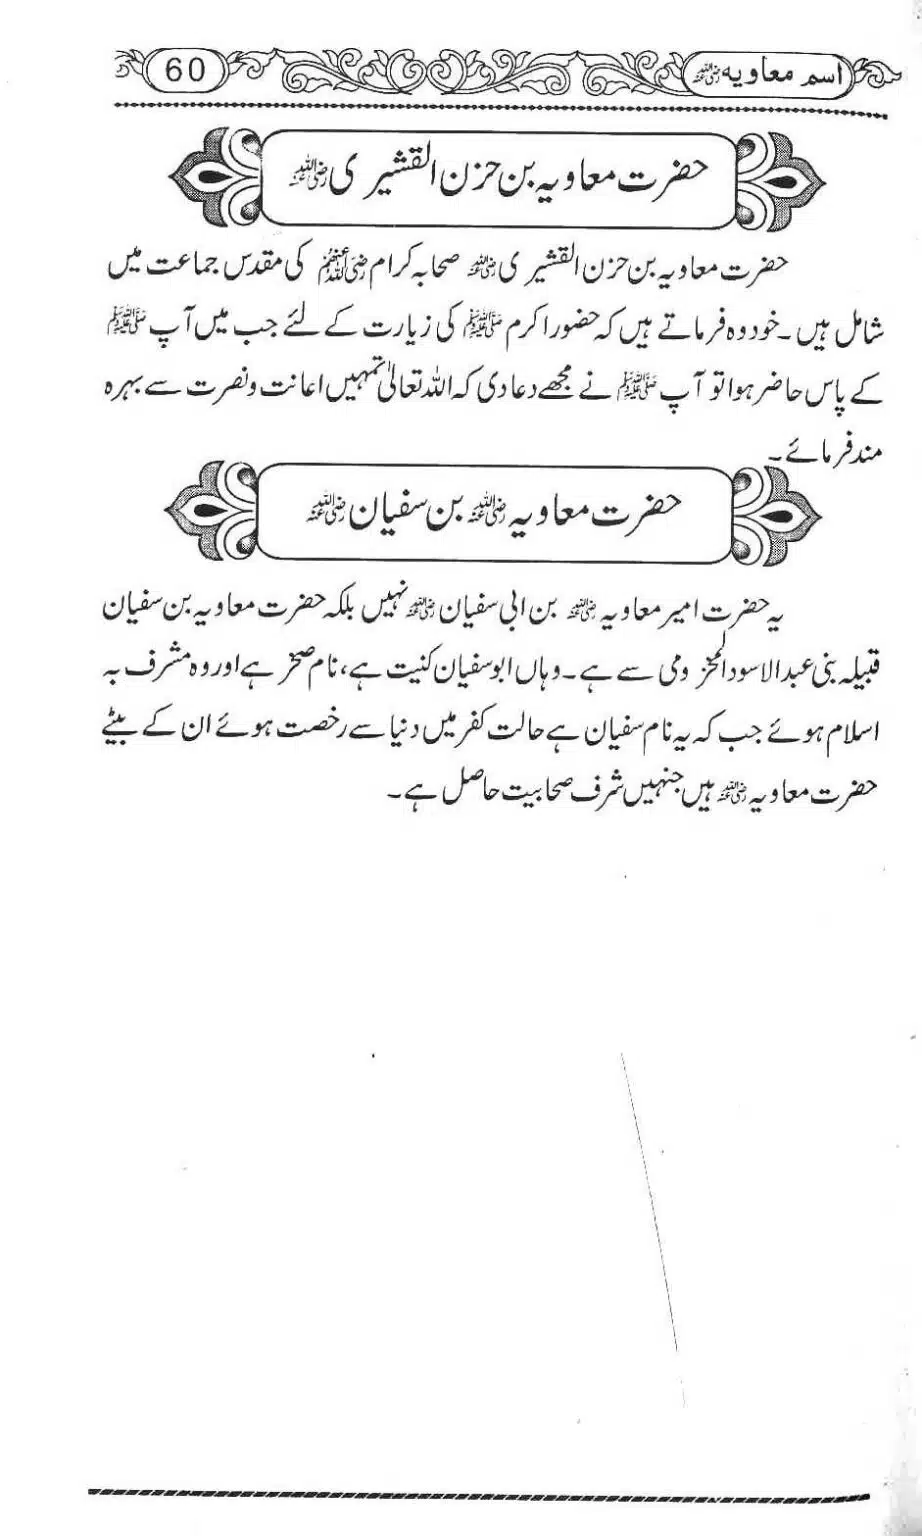 اسم معاویہ رضی اللہ عنہ
60
حضرت معاویہ بن حزن القشیری رضی اللہ عنہ
حضرت معاویہ بن حزن القشیری رضی اللہ عنہ صحابہ کرام رضی اللہ عنہم کی مقدس جماعت میں
شامل ہیں۔ خود وہ فرماتے ہیں کہ حضور اکرم ﷺ کی زیارت کے لئے جب میں آپ ﷺ
کے پاس حاضر ہوا تو آپ ﷺ نے مجھے دعا دی کہ اللہ تعالیٰ تمہیں اعانت و نصرت سے بہرہ
مند فرمائے۔
حضرت معاویہ رضی اللہ عنہ بن سفیان رضی اللہ عنہ
یہ حضرت امیر معاویہ رضی اللہ عنہ بن ابی سفیان رضی اللہ عنہ نہیں بلکہ حضرت معاویہ بن سفیان
قبیلہ بنی عبدالاسود المخزومی سے ہے۔ وہاں ابوسفیان کنیت ہے، نام صخر ہے اور وہ مشرف بہ
اسلام ہوئے جب کہ یہ نام سفیان ہے حالت کفر میں دنیا سے رخصت ہوئے ان کے بیٹے
حضرت معاویہ رضی اللہ عنہ ہیں جنہیں شرف صحابیت حاصل ہے۔